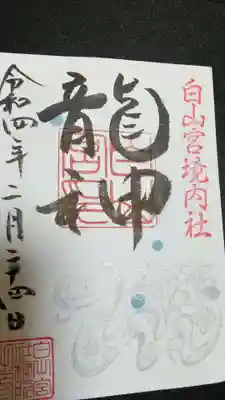 白山宮境内社
龍神
令和四年二月二十四日
白山宮